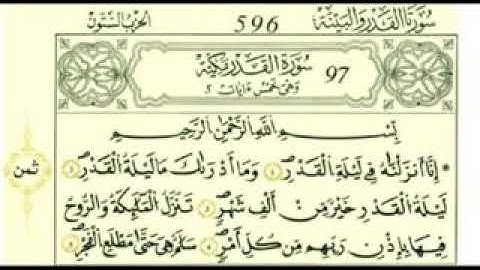 سُورَتَا الْقَدْرِ وَالْبَيِّنَةِ 596 الحزب الستون
سُورَةُ الْقَدْرِ مَكِّيَّةٌ 97
وَهْيَ خَمْسُ ءَايَاتٍ
بِسْمِ اللَّهِ الرَّحْمَٰنِ الرَّحِيمِ
* إِنَّا أَنزَلْنَٰهُ فِي لَيْلَةِ الْقَدْرِۖ ① وَمَا أَدْر۪ىٰكَ مَا لَيْلَةُ الْقَدْرِۖ ②
لَيْلَةُ الْقَدْرِ خَيْرٌ مِّنْ أَلْفِ شَهْرٍۖ ③ تَنَزَّلُ الْمَلَٰٓئِكَةُ وَالرُّوحُ
فِيهَا بِإِذْنِ رَبِّهِم مِّن كُلِّ أَمْرٍۖ ④ سَلَٰمٌ هِيَ حَتَّىٰ مَطْلَعِ الْفَجْرِۖ ⑤
ثمن